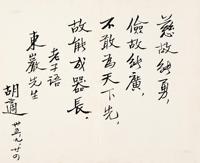 慈故能勇，
儉故能廣，
不敢為天下先，
故能成器長．
老子語
東嚴先生
胡適